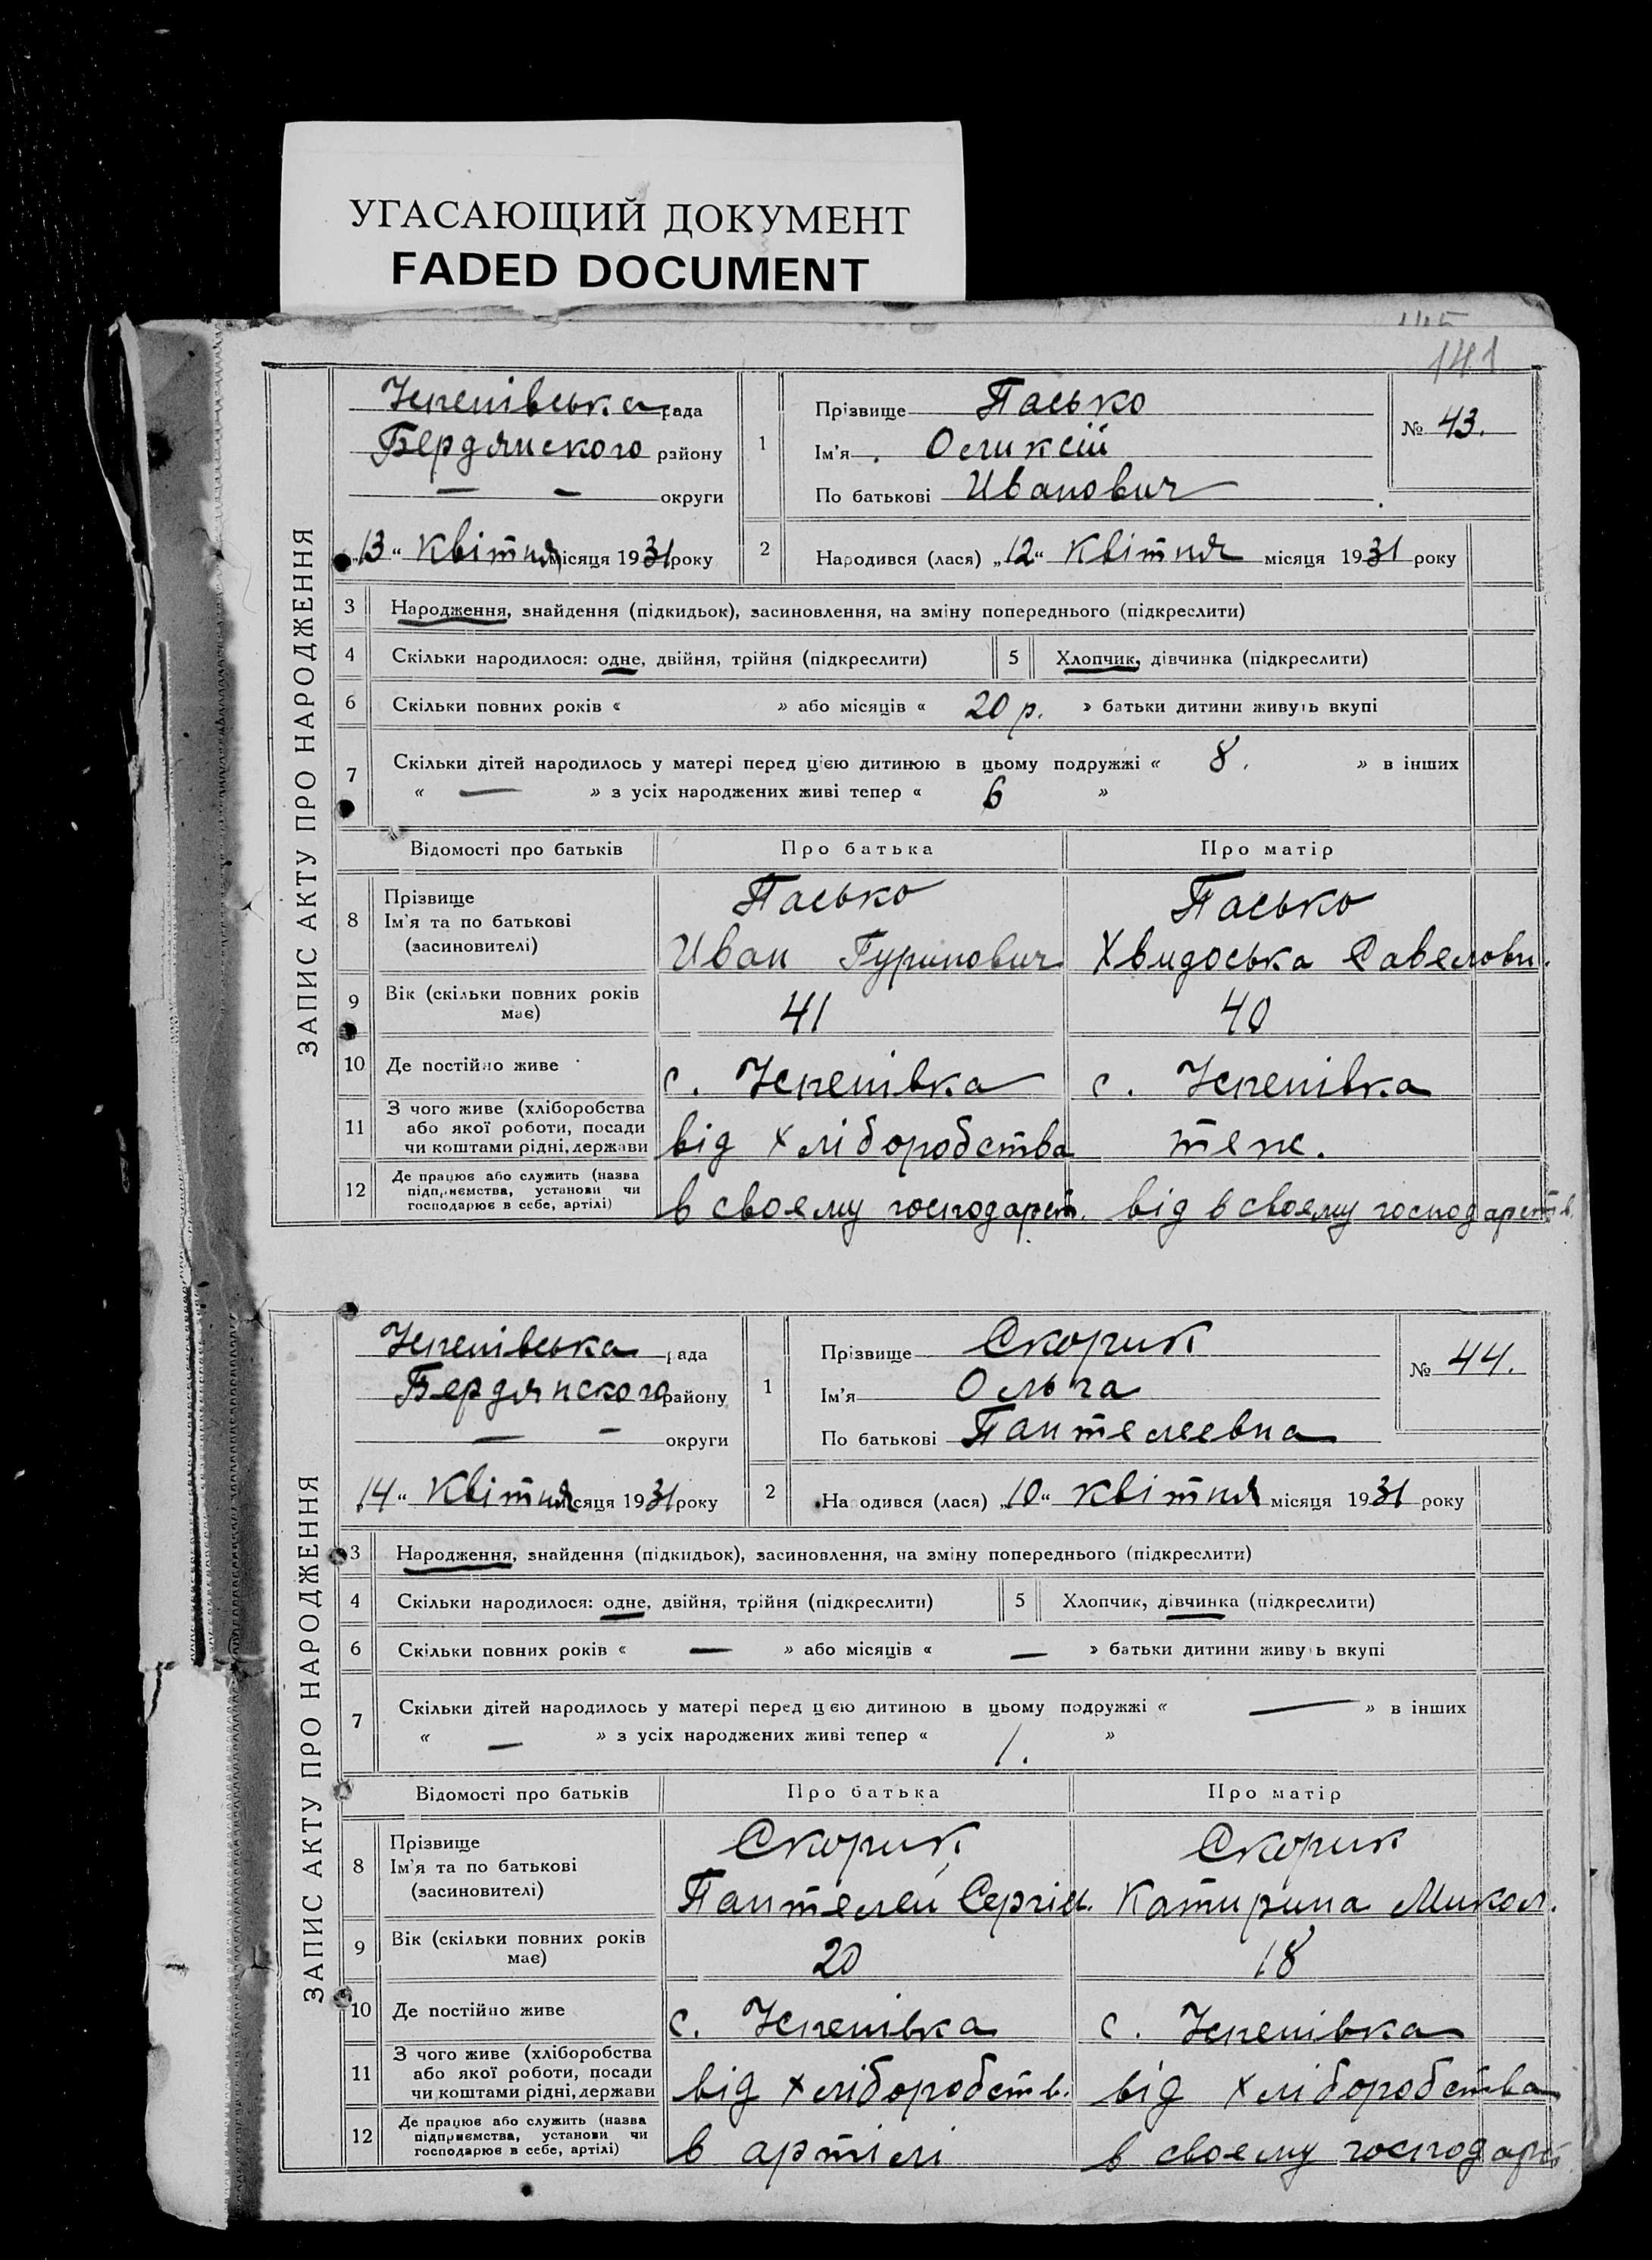 УГАСАЮЩИЙ ДОКУМЕНТ
FADED DOCUMENT
141
ЗАПИС АКТУ ПРО НАРОДЖЕННЯ
Успенівська рада
Бердянского району
— — округи
„13“ Квітня місяця 1931 року
1
Прізвище Пасько
Ім'я Оликсій
По батькові Иванович
№ 43.
2 Народився (лася) „12“ Квітня місяця 1931 року
3 Народження, знайдення (підкидьок), засиновлення, на зміну попереднього (підкреслити)
4 Скільки народилося: одне, двійня, трійня (підкреслити) 5 Хлопчик, дівчинка (підкреслити)
6 Скільки повних років « » або місяців « 20 р. » батьки дитини живуть вкупі
7 Скільки дітей народилось у матері перед цією дитиною в цьому подружжі « 8. » в інших
« — » з усіх народжених живі тепер « 6 »
Відомості про батьків Про батька Про матір
8 Прізвище Пасько Пасько
Ім'я та по батькові
(засиновителі) Иван Гуринович Хвидоська Савеловн.
9 Вік (скільки повних років має) 41 40
10 Де постійно живе с. Успенівка с. Успенівка
11 З чого живе (хліборобства
або якої роботи, посади
чи коштами рідні, держави від хліборобства теж.
12 Де працює або служить (назва
підприємства, установи чи
господарює в себе, артілі) в своєму господарст. від в своєму господарств.
ЗАПИС АКТУ ПРО НАРОДЖЕННЯ
Успенівська рада
Бердянского району
— — округи
14“ Квітня місяця 1931 року
1
Прізвище Скорик
Ім'я Ольга
По батькові Пантелеевна
№ 44.
2 Народився (лася) „10“ Квітня місяця 1931 року
3 Народження, знайдення (підкидьок), засиновлення, на зміну попереднього (підкреслити)
4 Скільки народилося: одне, двійня, трійня (підкреслити) 5 Хлопчик, дівчинка (підкреслити)
6 Скільки повних років « — » або місяців « — » батьки дитини живуть вкупі
7 Скільки дітей народилось у матері перед цією дитиною в цьому подружжі « — » в інших
« — » з усіх народжених живі тепер « 1. »
Відомості про батьків Про батька Про матір
8 Прізвище Скорик Скорик
Ім'я та по батькові
(засиновителі) Пантелей Сергій. Катирина Микол.
9 Вік (скільки повних років має) 20 18
10 Де постійно живе с. Успенівка с. Успенівка
11 З чого живе (хліборобства
або якої роботи, посади
чи коштами рідні, держави від хліборобств. від хліборобства
12 Де працює або служить (назва
підприємства, установи чи
господарює в себе, артілі) в артілі в своєму господарст